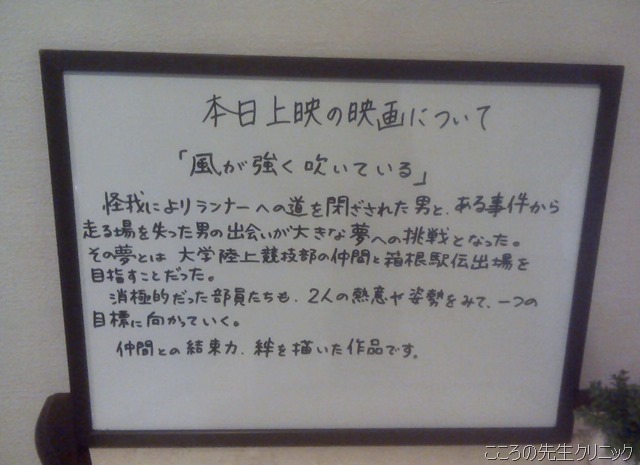 本日上映の映画について
「風が強く吹いている」
怪我によりランナーへの道を閉ざされた男と、ある事件から
走る場を失った男の出会いが大きな夢への挑戦となった。
その夢とは 大学陸上競技部の仲間と箱根駅伝出場を
目指すことだった。
消極的だった部員たちも、2人の熱意や姿勢をみて、一つの
目標に向かっていく。
仲間との結束力、絆を描いた作品です。
こころの先生クリニック